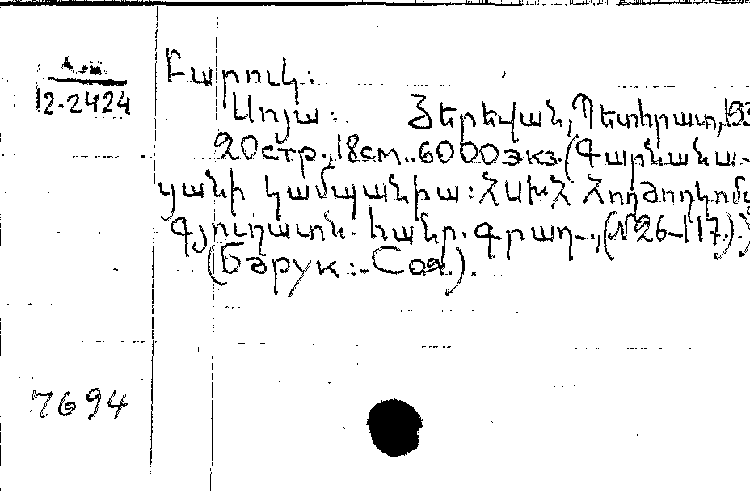 Арм.
12-2424
Բարուկ։
Սոյա։ Յերեվան, Պետհրատ, 193
20стр., 18см. 6000экз. (Գարնանա-
ցանի կամպանիա։ ՀՍԽՀ Հողժողկոմ
Գյուղատն. հանր. գրադ., (№26-117).)
(Барук:-Соя.).
7694